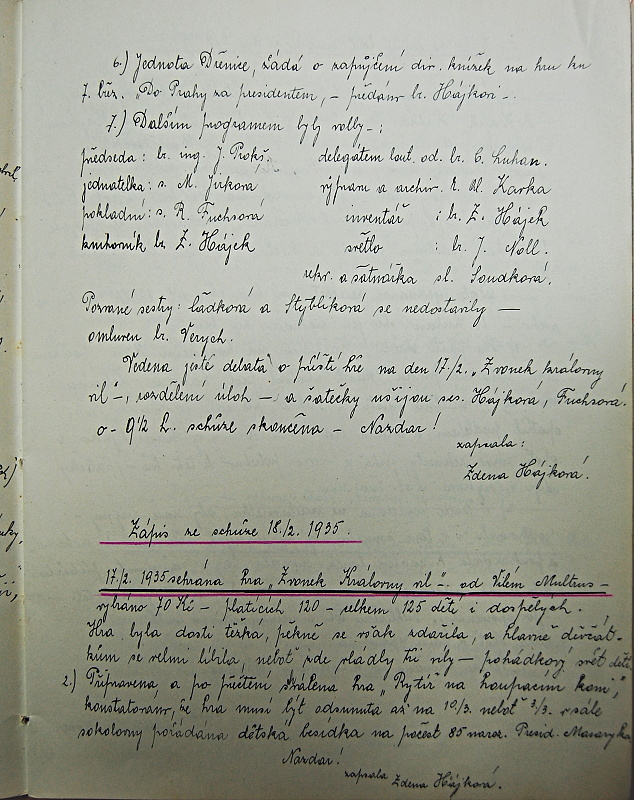 6.) Jednota Dřenice, žádá o zapůjčení div. knížek na hru ku
7. břez. "Do Prahy za presidentem, – předáno br. Hájkovi –.
7.) Dalším programem byly volby –;
předseda: br. ing. J. Prokš. delegátem lout. od. br. C. Luhan.
jednatelka: s. M. Jirkova výpram a archiv. br. Ul. Karka
pokladní: s. R. Fuchsová inventář : br. Z. Hájek
knihovník br. Z. Hájek světlo : br. J. Nóll.
rekv. a šatnářka sl. Soudková.
Pozvané sestry: Ládková a Stýbliková se nedostavily —
omluven br. Verych.
Vedena ještě debata o příští hře na den 17./2. "Zvonek královny
vil" –, rozdělení úloh – a šatečky ušijou ses. Hájková, Fuchsová.
o – 9½ h. schůze skončena – Nazdar!
zapsala:
Zdena Hájková.
Zápis ze schůze 18./2. 1935.
17./2. 1935 sehrána hra "Zvonek Královny vil" –. od Vilém Multrus –
vybráno 70 Kč – platících 120 – celkem 125 dětí i dospělých.
Hra byla dosti těžká, pěkně se však zdařila, a hlavně děvčát-
kům se velmi líbila, neboť zde vládly tři víly – pohádkový svět dětí.
2.) Připravena, a po přečtení hra "Rytíř na houpacím koni,"
konstatováno, že hra musí být odsunuta až na 10/3. neboť 3/3. v sále
sokolovny pořádána dětská besídka na počest 85 naroz. Presid. Masaryka
Nazdar!
zapsala Zdena Hájková.